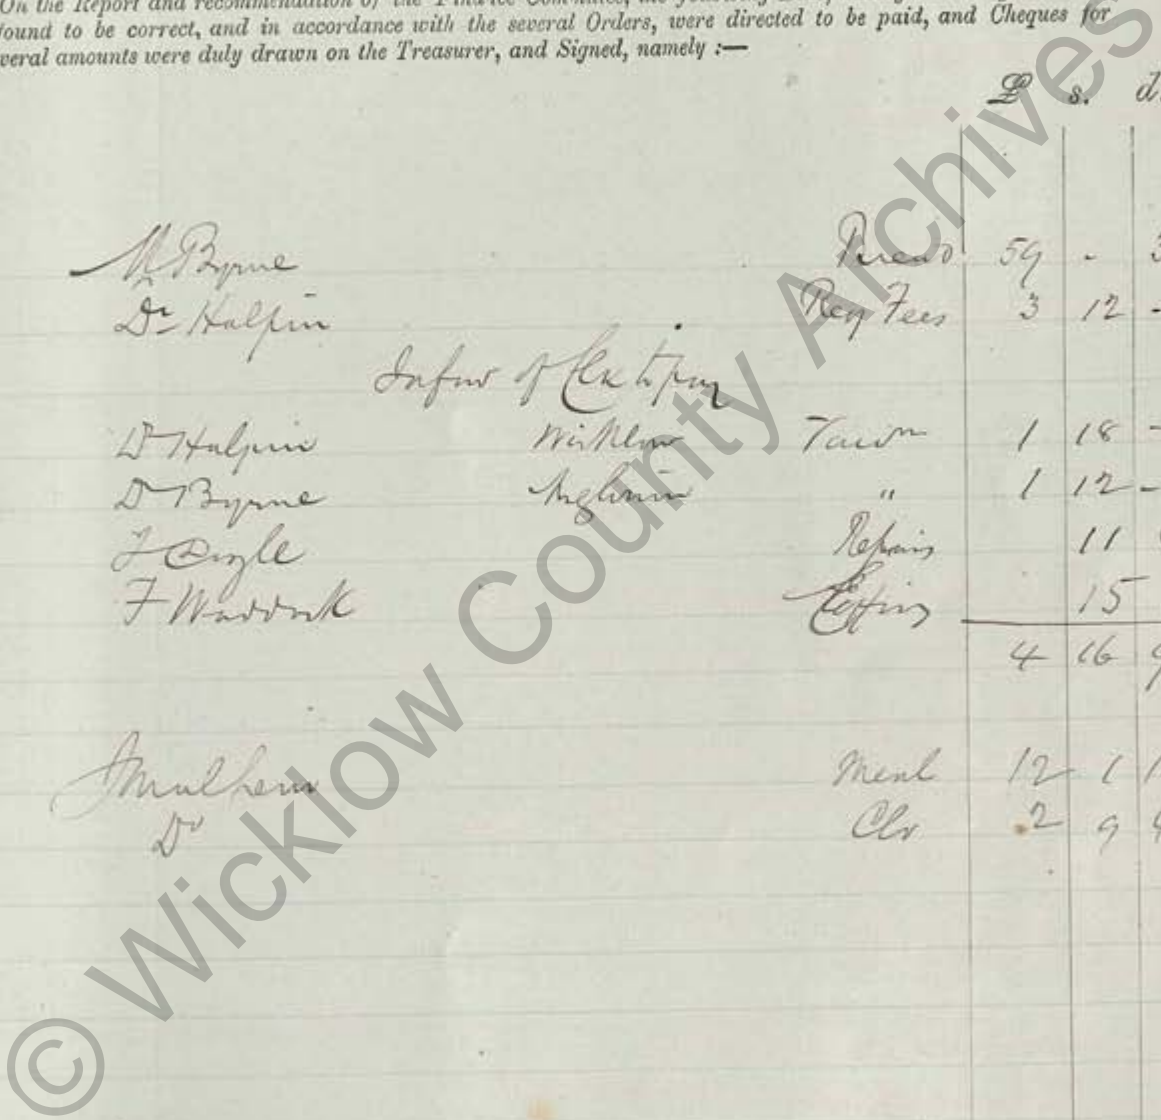 On the Report and recommendation of the Finance Committee, the following
found to be correct, and in accordance with the several Orders, were directed to be paid, and Cheques for
veral amounts were duly drawn on the Treasurer, and Signed, namely :—
£ s. d.
M Byrne 59 - 3
Dr Halpin Reg Fees 3 12 -
of
Dr Halpin Wicklow 1 18 -
Dr Byrne " 1 12 -
Repairs 11
F Waddock Coffins 15
4 16 9
J Mulhern Meal 12 1 1
Do 2 9
© Wicklow County Archives